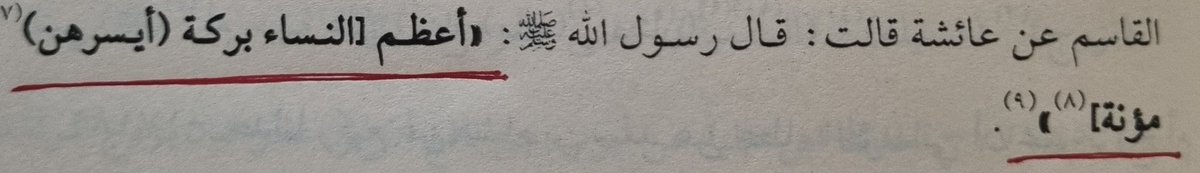 القاسم عن عائشة قالت: قال رسول الله ﷺ: «أعظم [النساء بركة (أيسرهن)(٧)
مؤنة](٨)»(٩).